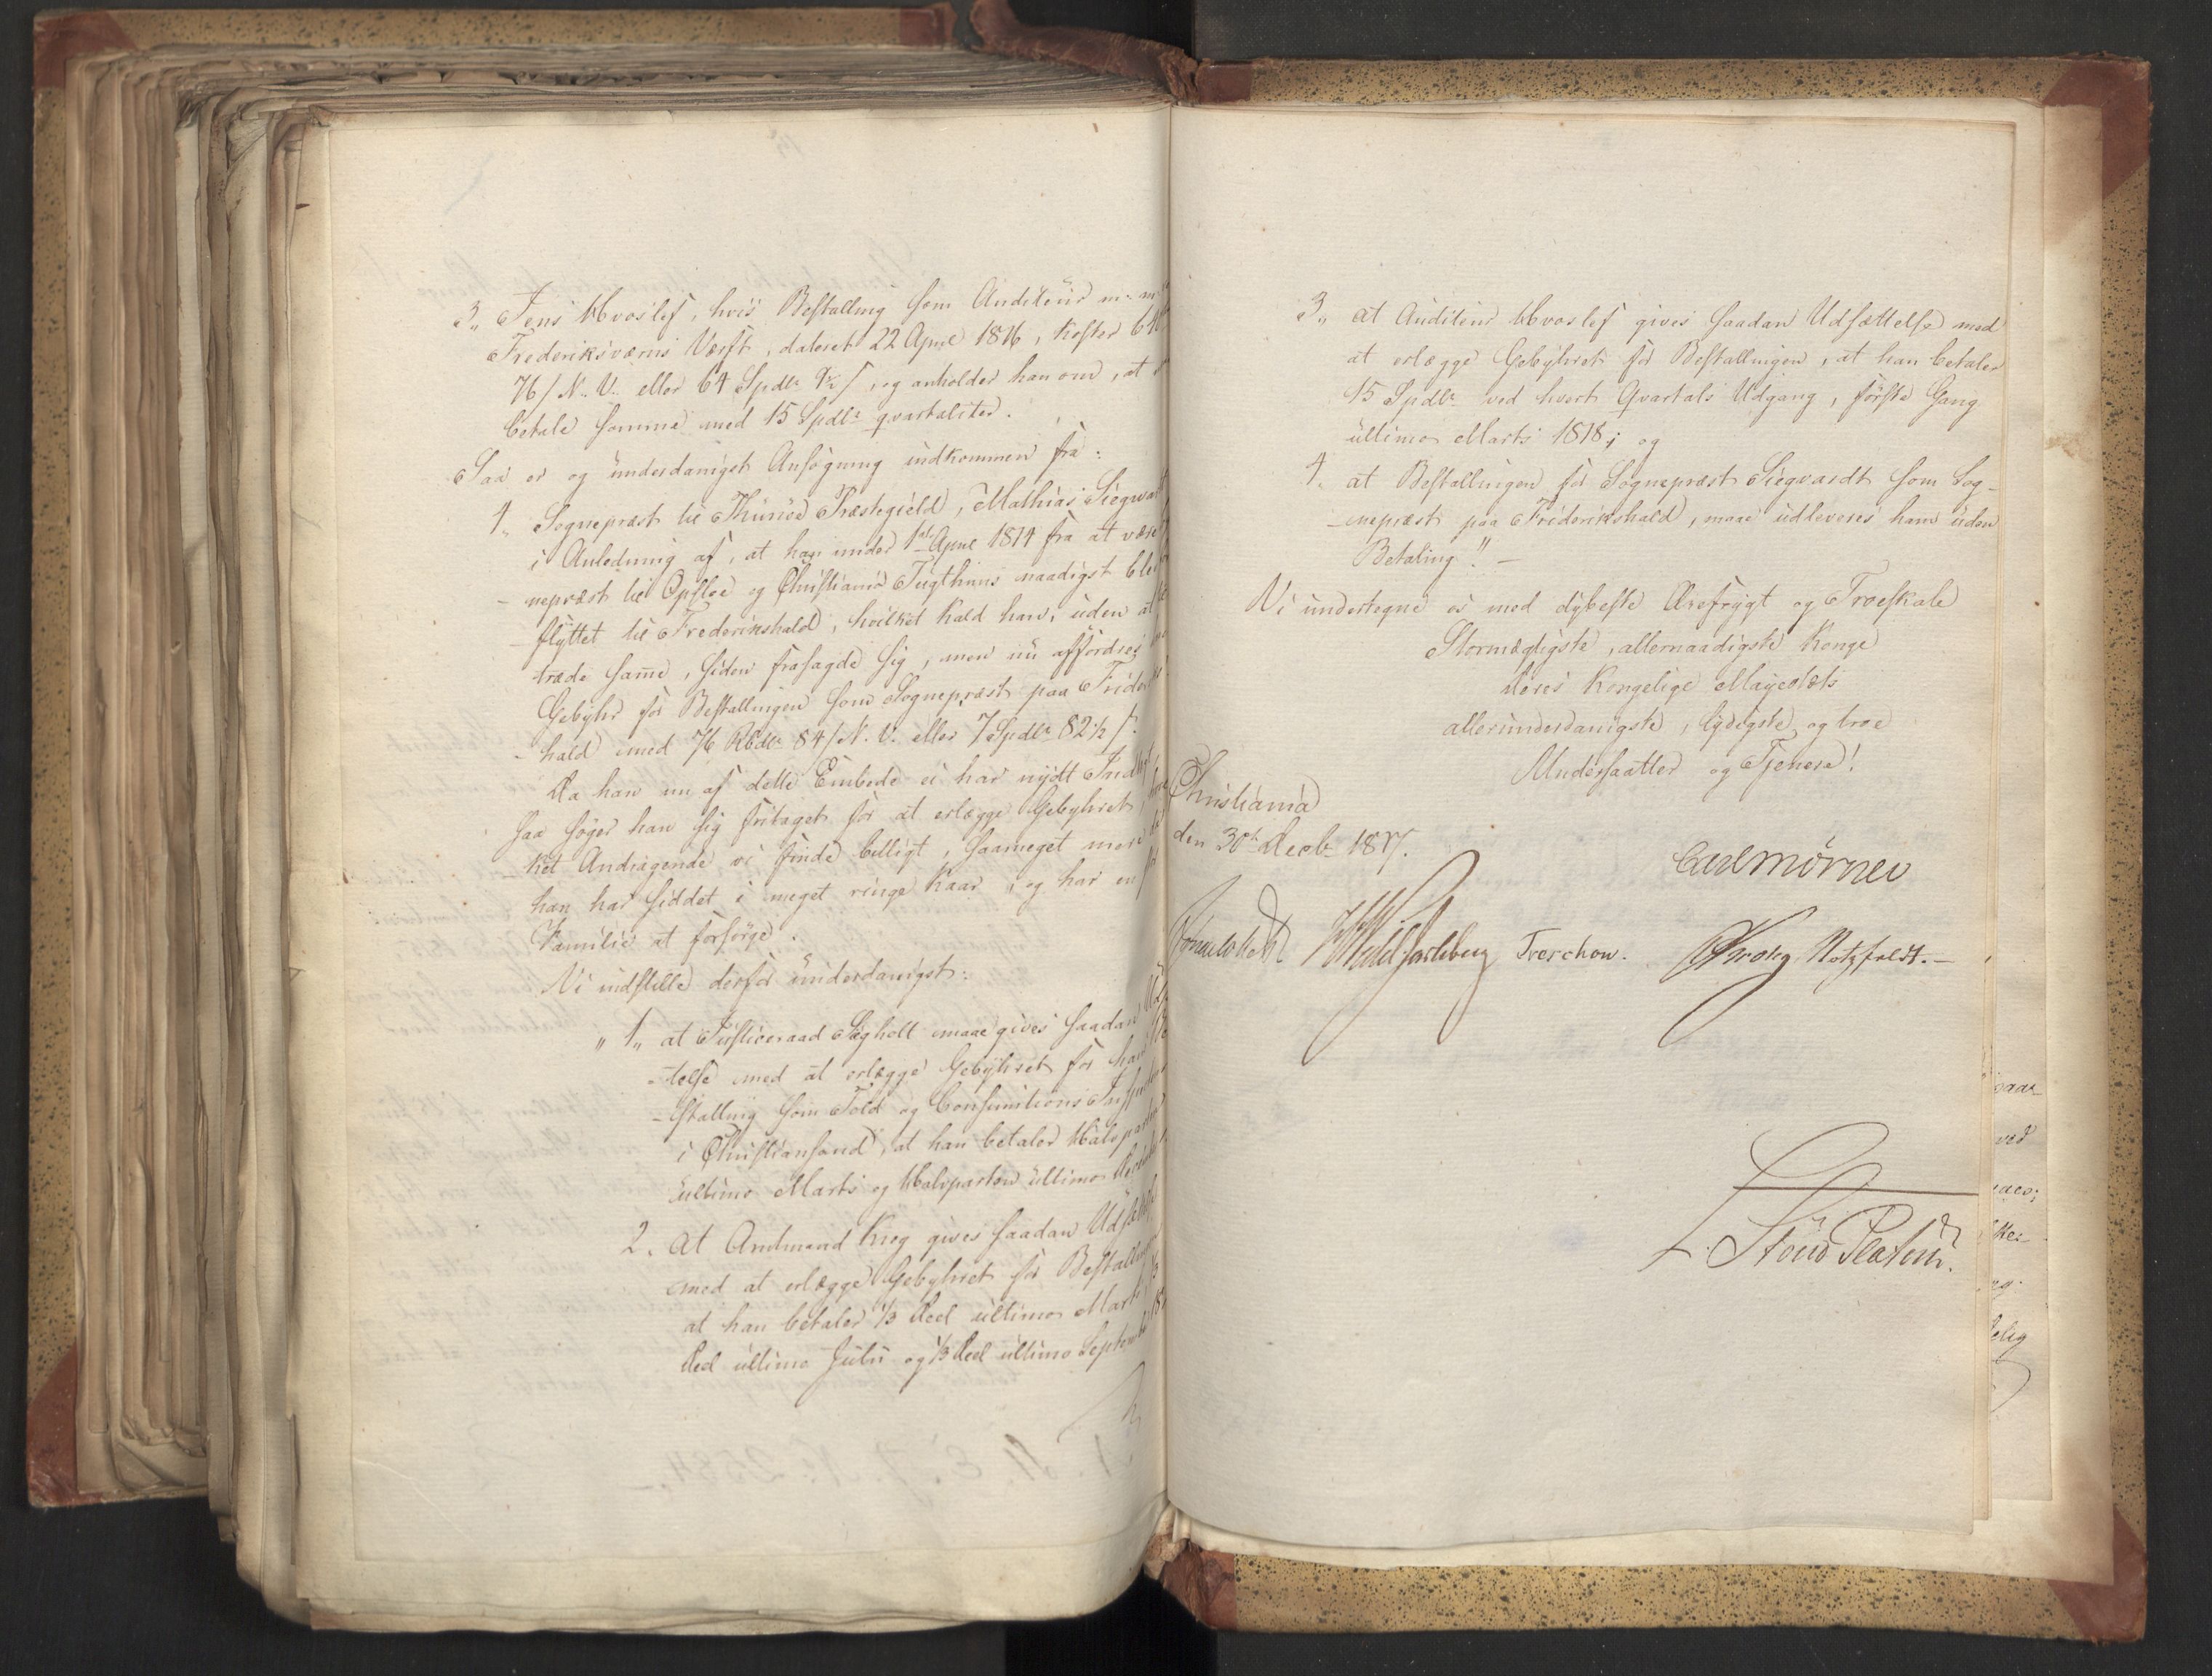 3., Jens Hvoslef, hvis Bestalling som Auditeur m: m:
Frederiksværns Værft, dateret 22 April 1816, koster
76 s N. V. eller 64 Spdlr 9½ s, og anholder han om, at
betale samme med 15 Spdlr qvartaliter.
Saa er og underdanigst Ansøgning indkommen fra:
4., Sognepræst til Thunøe Præstegield, Mathias Siegwardt
i Anledning af, at han under 1ste April 1814 fra at være
-nepræst til Opsloe og Christiania Tugthuus naadigst blev
flyttet til Frederikshald, hvilket Kald han, uden at
træde same, siden frasagde sig, men nu affordres
Gebyhr for Bestallingen som Sognepræst paa Frider
-hald med 76 Rbdlr 84 s N. V. eller 7 Spdlr 82½ s.
Da han nu af dette Embede ei har nydt
saa søger han sig fritaget for at erlægge Gebyhret,
-ket Andragende vi finde billigt, saameget mere
han har siddet i meget ringe Kaar, og har en
Familie at forsørge.
Vi indstille derfor underdanigst:
„1„ at Justiceraad Sægholt maae gives saadan
-telse med at erlægge Gebyhret for hans
-stalling som Told og Consumtions
i Christiansand, at han betaler Halvparten
ultimo Marts og Halvparten ultimo
2. at Amtmand Krog gives saadan Udsættelse
med at erlægge Gebyhret for
at han betaler 1/3 Deel ultimo Marts, 1/3
Deel ultimo Julii og 1/3 Deel ultimo
3., at Auditeur Hvoslef gives saadan Udsættelse med
at erlægge Gebyhret for Bestallingen, at han betaler
15 Spdlr ved hvert Qvartals Udgang, første Gang
ultimo Marts 1818; og
4. at Bestallingen for Sognepræst Siegvardt som Sog-
-nepræst paa Friderikshald, maae udleveres ham uden
Betaling". -
Vi undertegne os med dybeste Ærefrygt og Troeskab
Stormægtigste, allernaadigste Konge
Deres Kongelige Mayestæts
allerunderdanigste, lydigste og troe
Undersaatter og Tjenere!
Christiania
den 30te Decbr 1817.
Carl Mörner
Sommerhielm Wedel Jarlsberg Treschow. Krohg Motzfeldt. -
F. Due Platou.